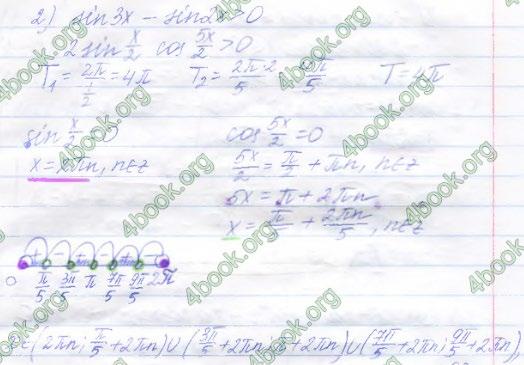 2) sin3x - sin2x > 0
2 sin x/2 cos 5x/2 > 0
T₁ = 2π/(1/2) = 4π T₂ = 2π·2/5 = 4π/5 T = 4π
sin x/2 = 0 cos 5x/2 = 0
x = 2πn, n∈Z 5x/2 = π/2 + πn, n∈Z
5x = π + 2πn
x = π/5 + 2πn/5, n∈Z
+ - + - + -
0 π/5 3π/5 π 7π/5 9π/5 2π
x∈(2πn; π/5 + 2πn)∪(3π/5 + 2πn; π + 2πn)∪(7π/5 + 2πn; 9π/5 + 2πn),
4book.org